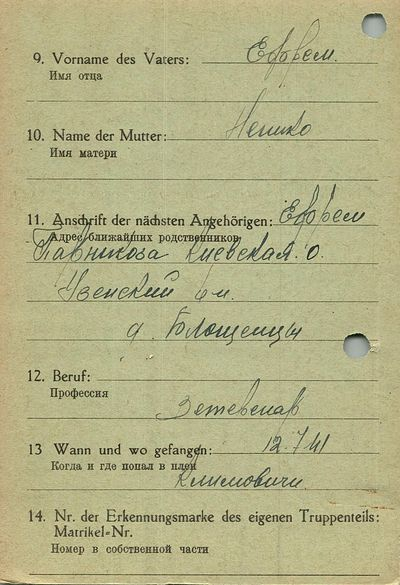 9. Vorname des Vaters: Ефрем
Имя отца
10. Name der Mutter:
Имя матери
11. Anschrift der nächsten Angehörigen: Ефрем
Адрес ближайших родственников
Киевская о.
Узенский
д. Блощенцы
12. Beruf:
Профессия
13 Wann und wo gefangen: 12.7.41
Когда и где попал в плен
Климовичи
14. Nr. der Erkennungsmarke des eigenen Truppenteils:
Matrikel-Nr.
Номер в собственной части